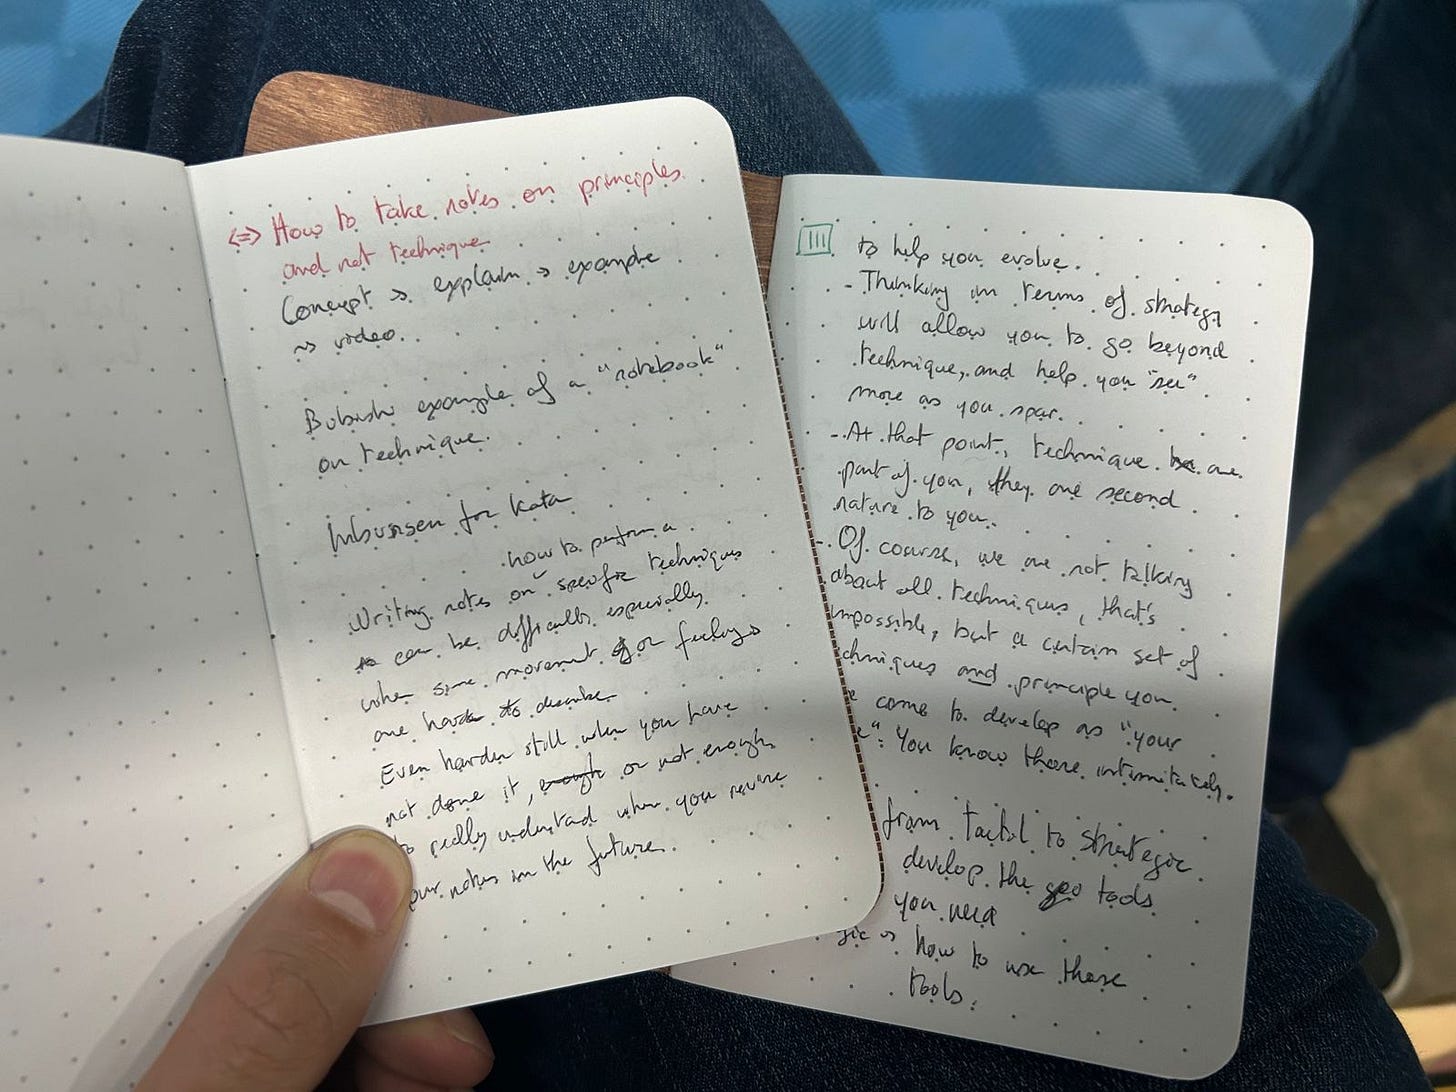 <=> How to take notes on principles
and not technique
Concept -> explain -> example
~> video.
Bubishi example of a "notebook"
on technique.
for kata
how to perform a
Writing notes on specific techniques
can be difficult, especially
when some movement or feelings
are hard to describe
Even harder still when you have
not done it, enough or not enough
to really understand when you review
your notes in the future.
III
to help you evolve.
- Thinking in terms of strategy
will allow you to go beyond
technique, and help you "see"
more as you spar.
- At that point, technique are
part of you, they are second
nature to you.
- Of course, we are not talking
about all techniques, that's
impossible, but a certain set of
techniques and principle you
come to develop as "your
". You know those intimitately.
from tactical to strategic
develop the tools
you need
how to use those
tools.